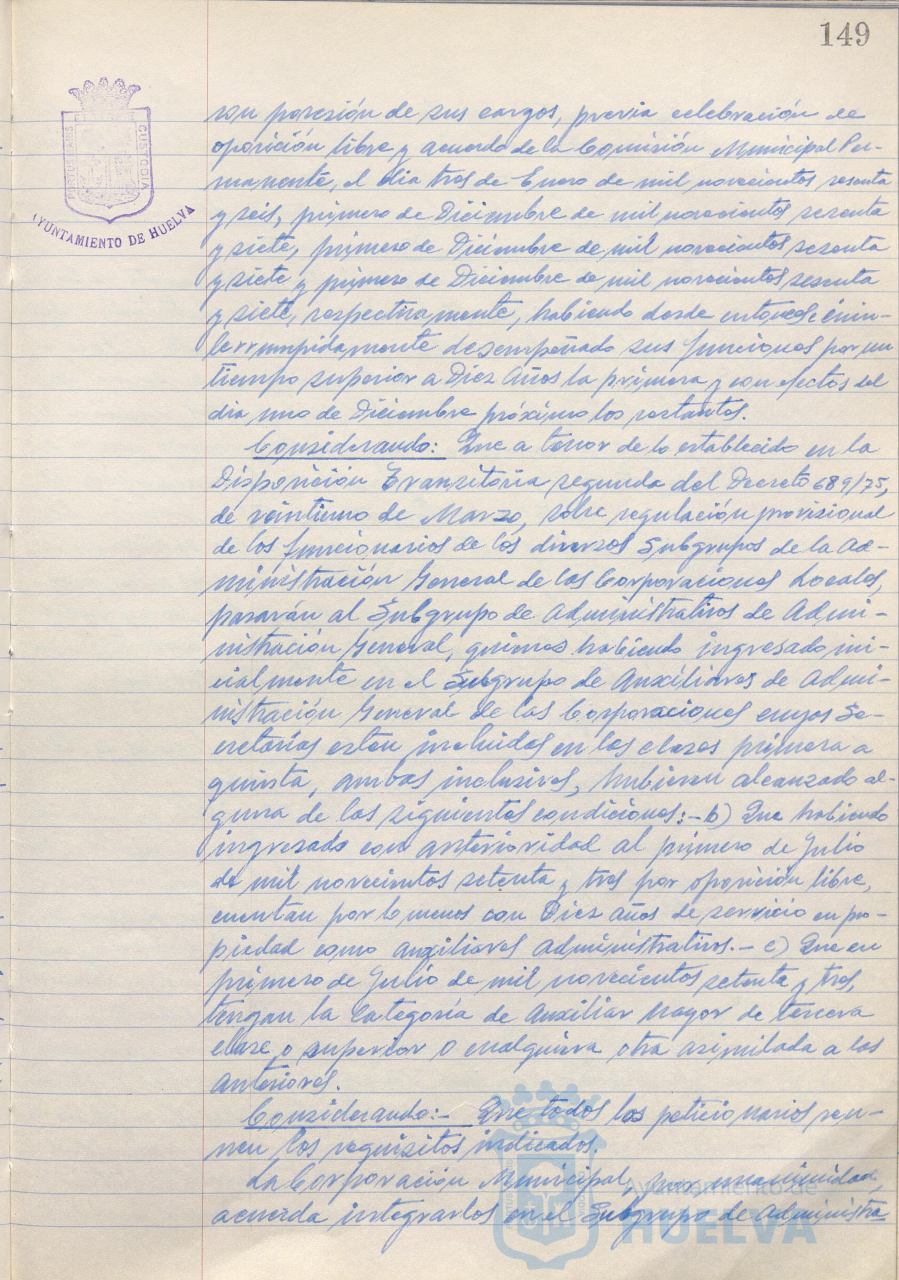 149
PORTUS MARIS
CUSTODIA
AYUNTAMIENTO DE HUELVA
ron posesión de sus cargos, previa celebración de
oposición libre y acuerdo de la Comisión Municipal Per-
manente, el dia tres de Enero de mil novecientos sesenta
y seis, primero de Diciembre de mil novecientos sesenta
y siete, primero de Diciembre de mil novecientos sesenta
y siete y primero de Diciembre de mil novecientos sesenta
y siete, respectivamente, habiendo desde entonces é inin-
terrumpidamente desempeñado sus funciones por un
tiempo superior a Diez años la primera y con efectos del
dia uno de Diciembre próximo los restantes.
Considerando: Que a tenor de lo establecido en la
Disposición Transitoria segunda del Decreto 689/75,
de veintiuno de Marzo, sobre regulación provisional
de los funcionarios de los diversos Subgrupos de la Ad-
ministración General de las Corporaciones Locales,
pasarán al Subgrupo de Administrativos de Admi-
nistración General, quienes habiendo ingresado ini-
cialmente en el Subgrupo de Auxiliares de Admi-
nistración General de las Corporaciones cuyas Se-
cretarías esten incluidas en las clases primera a
quinta, ambas inclusives, hubieran alcanzado al-
guna de las siguientes condiciones:- b) Que habiendo
ingresado con anterioridad al primero de Julio
de mil novecientos setenta y tres por oposición libre,
cuentan por lo menos con Diez años de servicio en pro-
piedad como auxiliares administrativos.- c) Que en
primero de Julio de mil novecientos setenta y tres,
tengan la Categoría de Auxiliar Mayor de tercera
clase o superior o cualquiera otra asimilada a las
anteriores.
Considerando:- Que todos los peticionarios reu-
nen los requisitos indicados.
La Corporación Municipal, por unanimidad,
acuerda integrarlos en el Subgrupo de Administra
Ayuntamiento de
HUELVA